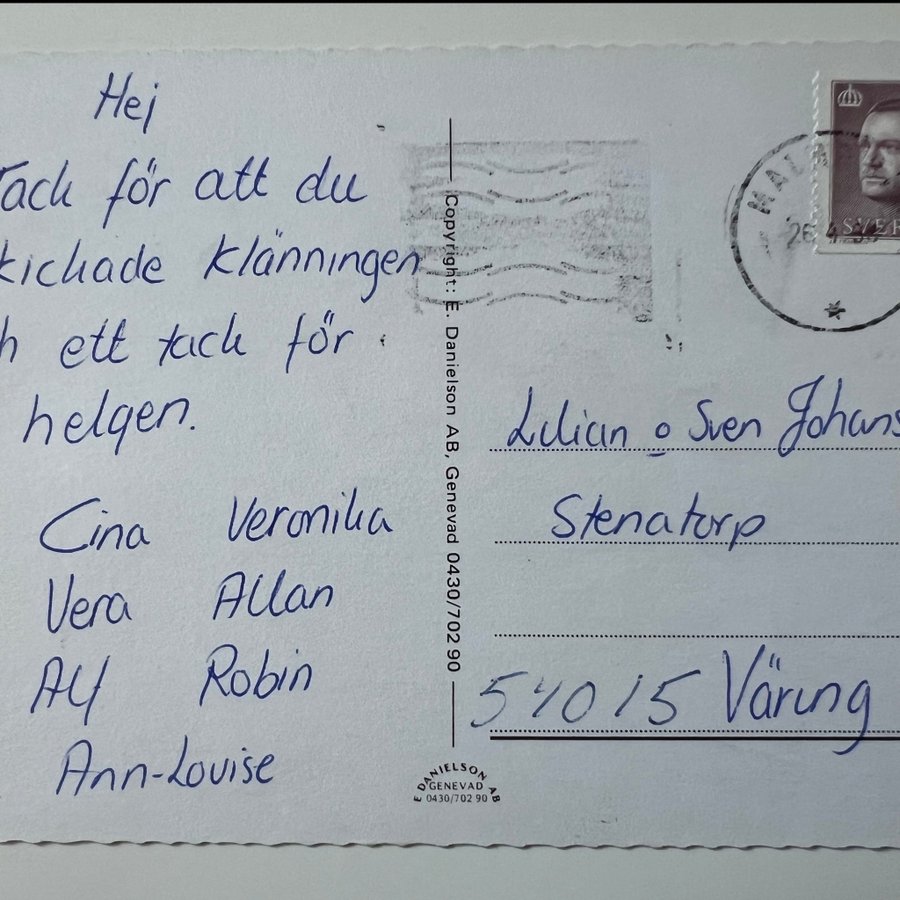 Hej
Tack för att du
kickade klänningen
h ett tack för
helgen.
Cina Veronika
Vera Allan
Alf Robin
Ann-Louise
Copyright: E. Danielson AB, Genevad 0430/702 90
E DANIELSON AB
GENEVAD
0430/702 90
SVER
MAL
26 4
Lilian o Sven Johans
Stenatorp
54015 Väring